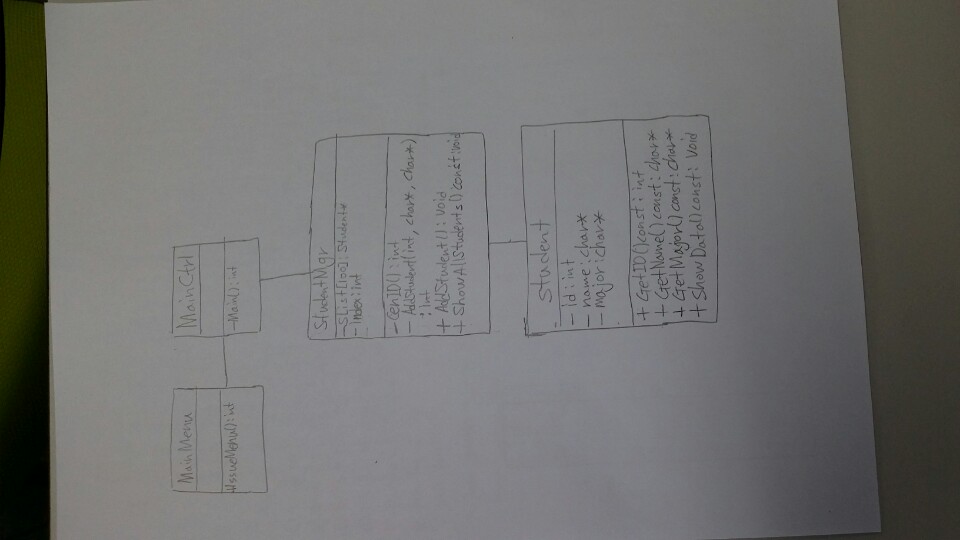 MainMenu
+IssueMenu():int
MainCtrl
-Main():int
StudentMgr
-SList[100]:Student*
-index:int
-GenID():int
-AddStudent(int, char*, char*)
:int
+AddStudent():void
+ShowAllStudents()const:void
Student
-id:int
-name:char*
-major:char*
+GetID()const:int
+GetName()const:char*
+GetMajor()const:char*
+ShowData()const:void